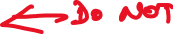 DO NOT